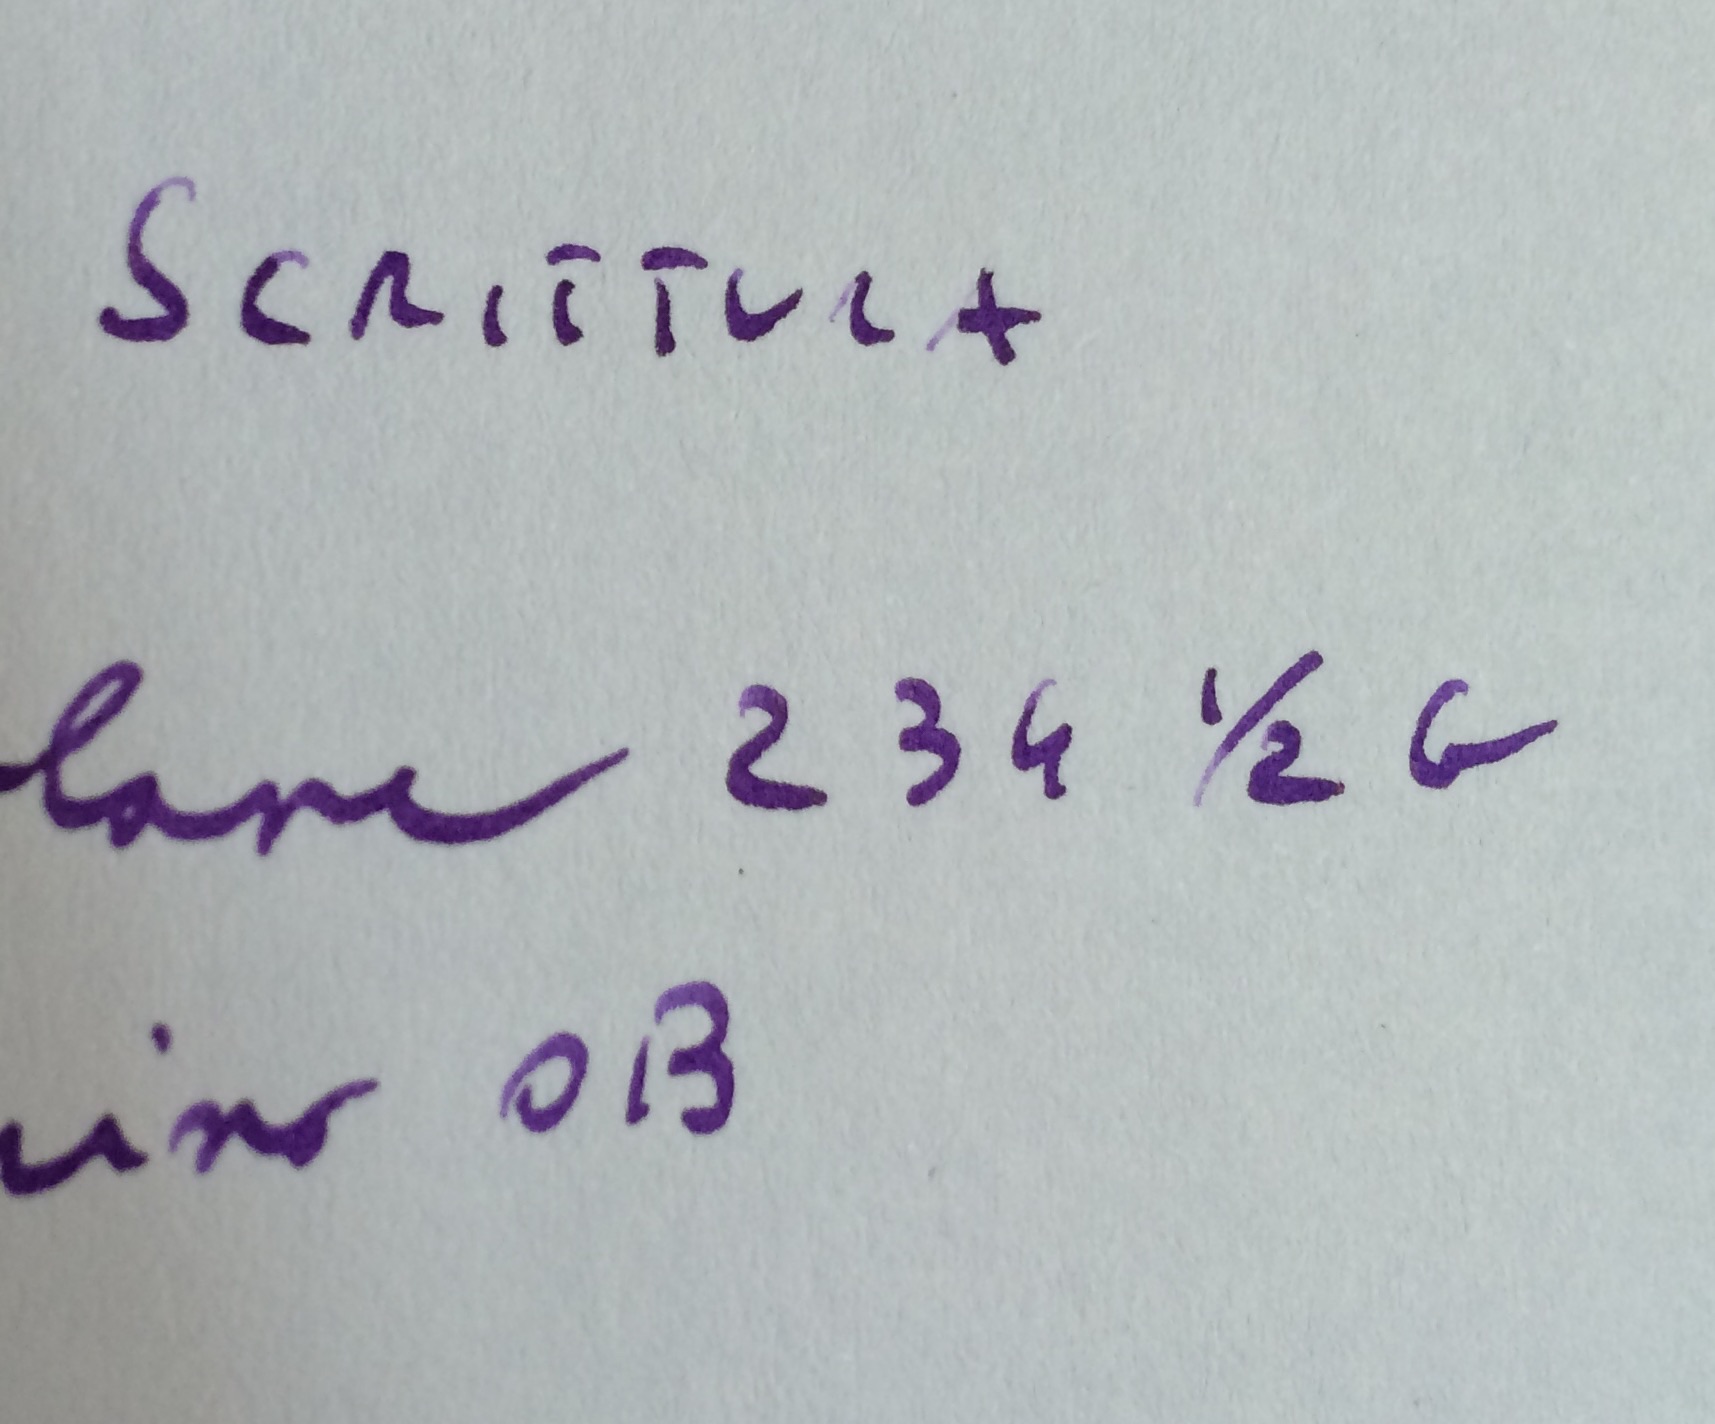 SCRITTURA
lane 234 1/2 G
uino OB